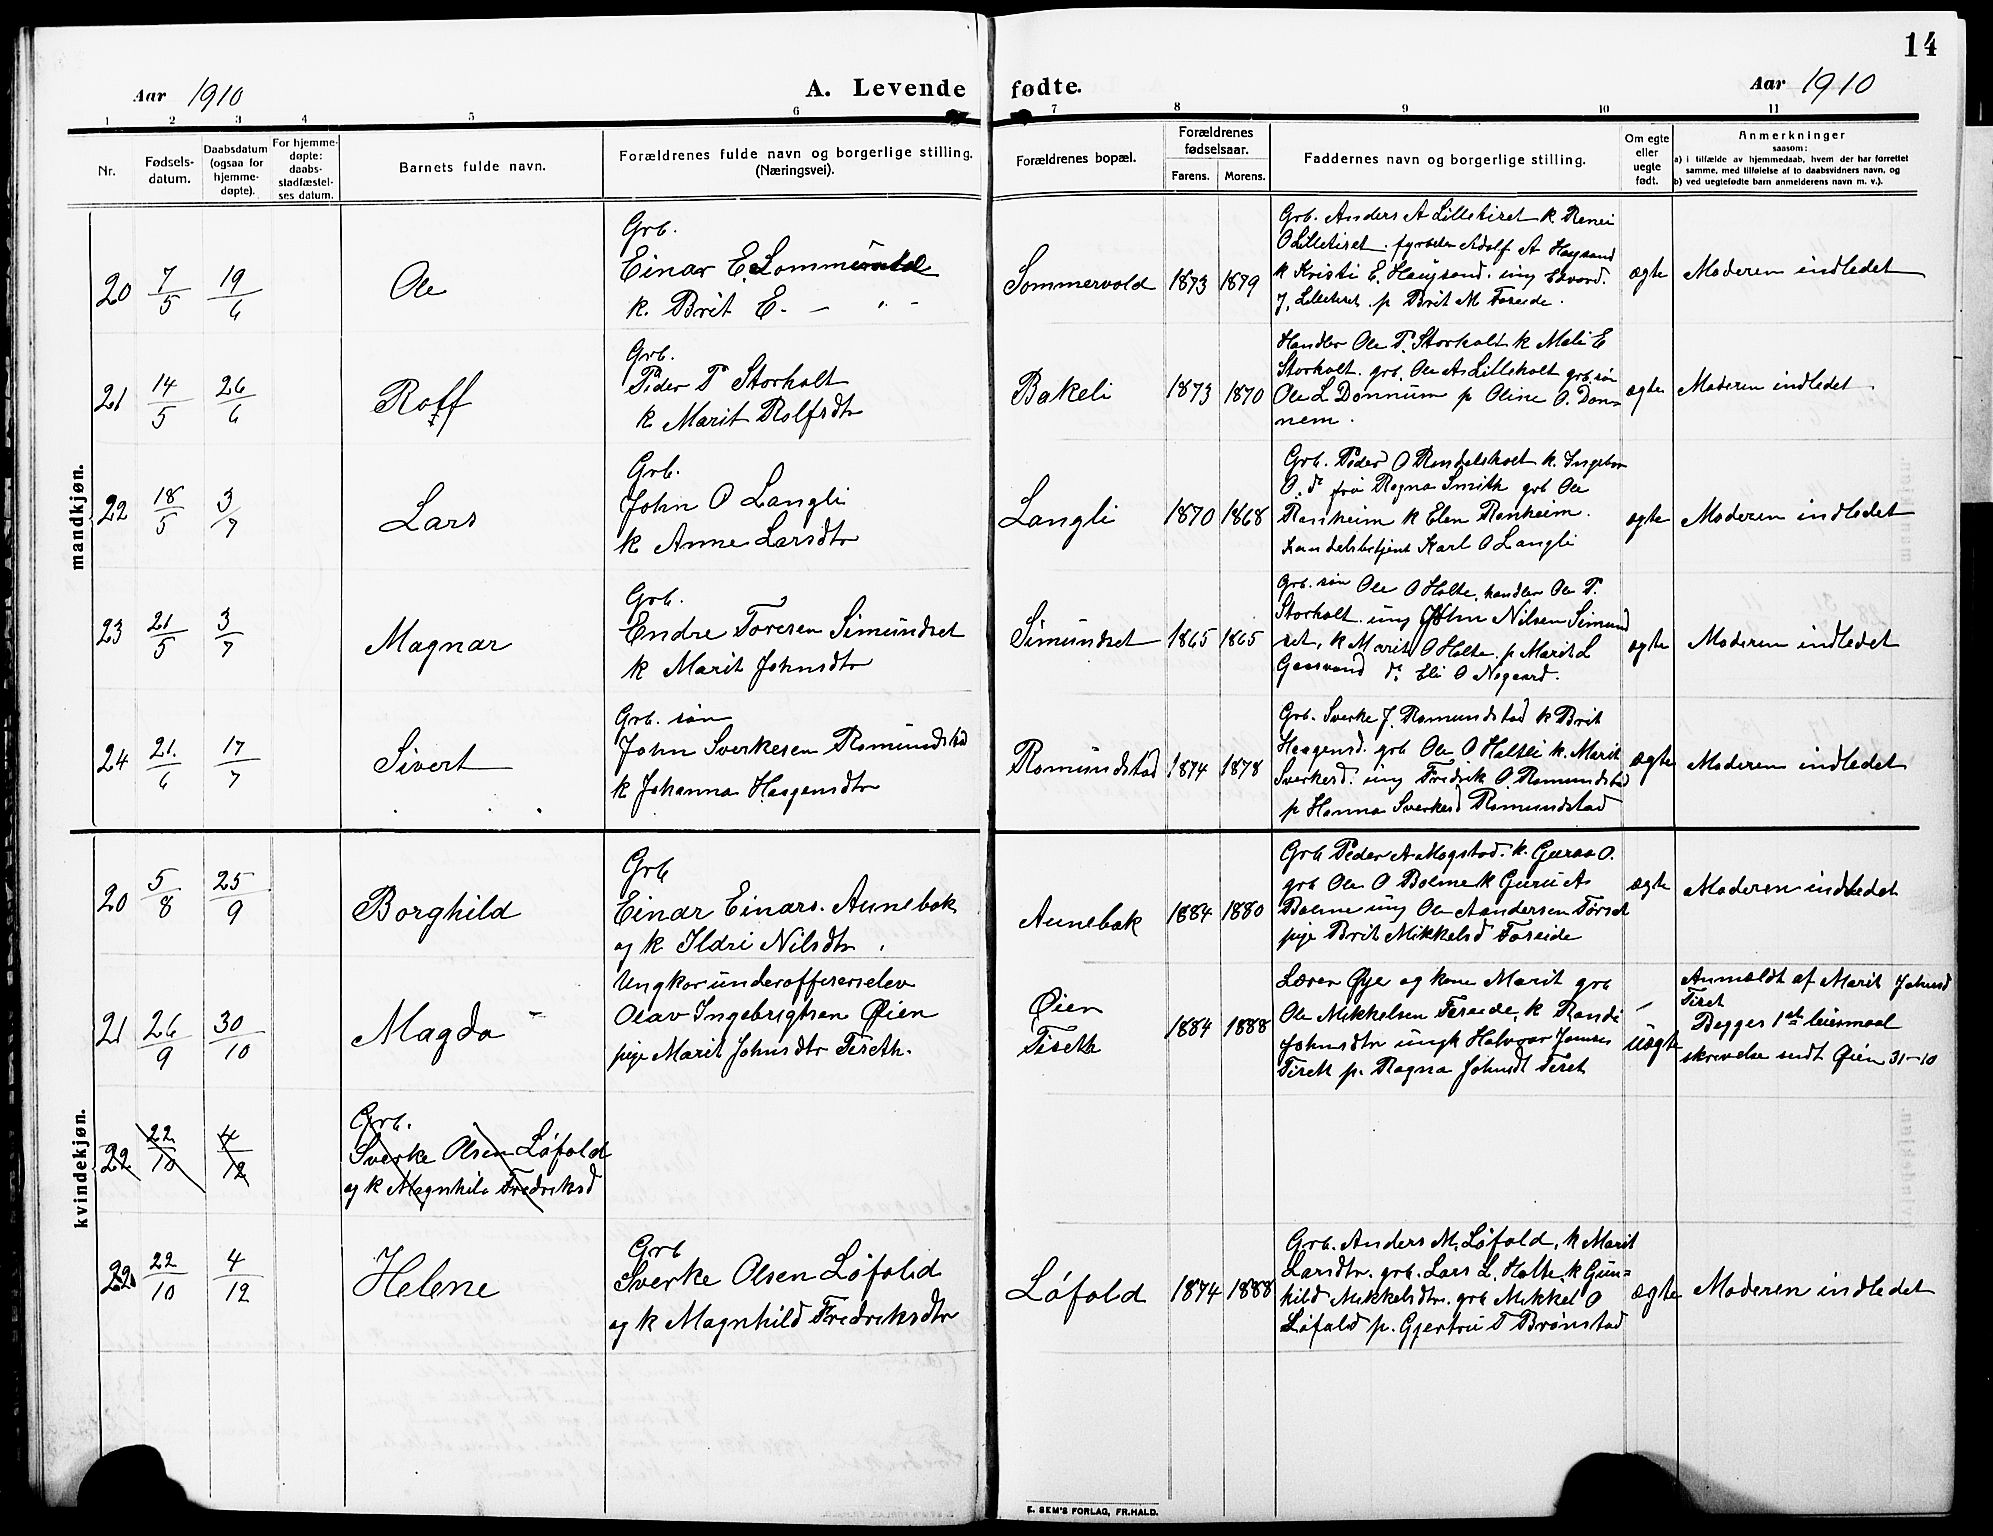 14
Aar 1910
A. Levende fødte.
Aar 1910
1 2 3 4 5 6 7 8 9 10 11
Nr.
Fødsels-
datum.
Daabsdatum
(ogsaa for
hjemme-
døpte).
For hjemme-
døpte:
daabs-
stadfæstel-
ses datum.
Barnets fulde navn.
Forældrenes fulde navn og borgerlige stilling.
(Næringsvei).
Forældrenes bopæl.
Forældrenes
fødselsaar.
Farens. Morens.
Faddernes navn og borgerlige stilling.
Om egte
eller
uegte
født.
Anmerkninger
saasom:
a) i tilfælde av hjemmedaab, hvem der har forrettet
samme, med tilføielse af to daabsvidners navn, og
b) ved uegtefødte barn anmelderens navn m. v.).
mandkjøn.
20 7/5 19/6 Ole
Grb.
Einar E. Sommervold
k. Brit E. - " -
Sommervold 1873 1879
Grb. Anders A Lilletiret k. Renei
O Lilletiret. fyrbøter Adolf A Haugsand
k Kristi E. Haugsand. ung Edvard.
J. Lilletiret p Brit M Foreide.
ægte Moderen indledet
21 14/5 26/6 Roff
Grb.
Peder P Storholt
k Marit Rolfsdtr
Bakeli 1873 1870
Handler Ole P. Storholt k Mali E
Storholt. grb. Ole A Lilleholt grb. søn
Ole L Donnum p Oline O. Don=
nem.
ægte Moderen indledet.
22 18/5 3/7 Lars
Grb.
John O Langli
k Anne Larsdtr
Langli 1870 1868
Grb. Peder O k. Ingebor
O. do frø Ragna Smith grb Ole
Ranheim k Elen Ranheim.
Handelsbetjent Karl O Langli
ægte Moderen indledet
23 21/5 3/7 Magnar
Grb.
Endre Toresen Simundset
k Marit Johnsdtr
Simundset 1865 1865
Grb. søn Ole O Holte, handler Ole P.
Storholt. ung John Nilsen Simund
set, k Marit O Holte. p Marit L
Gaasvand do Eli O Nogaard.
ægte Moderen indledet
24 21/6 17/7 Sivert
Grb. søn
John Sverkesen Romundstad
k Johanna Haagensdtr
Romundstad 1874 1878
Grb. Sverke J. Romundstad k Brit
Haagensd. grb Ole O Holtli k. Marit
Sverkesd. ung Fredrik O. Romundstad
p Hanna Sverkesd Romundstad
ægte Moderen indledet
kvindekjøn.
20 5/8 25/9 Borghild
Grb
Einar Einars. Aunebak
og k Ildri Nilsdtr.
Aunebak 1884 1880
Grb Peder A Mogstad. k. Guraa O.
grb Ole O Bolme k Guru As
Bolme ung Ole Aandersen Torset
pige Brit Mikkelsd Foreide
ægte Moderen indledet
21 26/9 30/10 Magda
Ungkar underofficerselev
Olav Ingebrigtsen Øien
pige Marit Johnsdtr Tireth.
Øien
Tireth
1884 1888
Lærer Øye og kone Marit grb
Ole Mikkelsen Foreide, k Randi
Johnsdtr ungk Halvor Jonses
Tireth p. Ragna Johnsdt Tiret
uægte
Anmeldt af Marit Johnsd
Tiret
Begges 1ste leiermaal
skrivelse sendt Øien 31-10
22 22/10 4/12
Grb.
Sverke Olsen Løfald
og k Magnhild Fredriksd
22. 22/10 4/12 Helene
Grb
Sverke Olsen Løfald
og k Magnhild Fredriksdtr
Løfald 1874 1888
Grb. Anders M. Løfald, k Marit
Larsdtr. grb. Lars L. Holte, k Gun=
hild Mikkelsdtr. grb Mikkel O
Løfald p. Gjertru T Brønstad
ægte Moderen indledet
E. SEM'S FORLAG, FR.HALD.